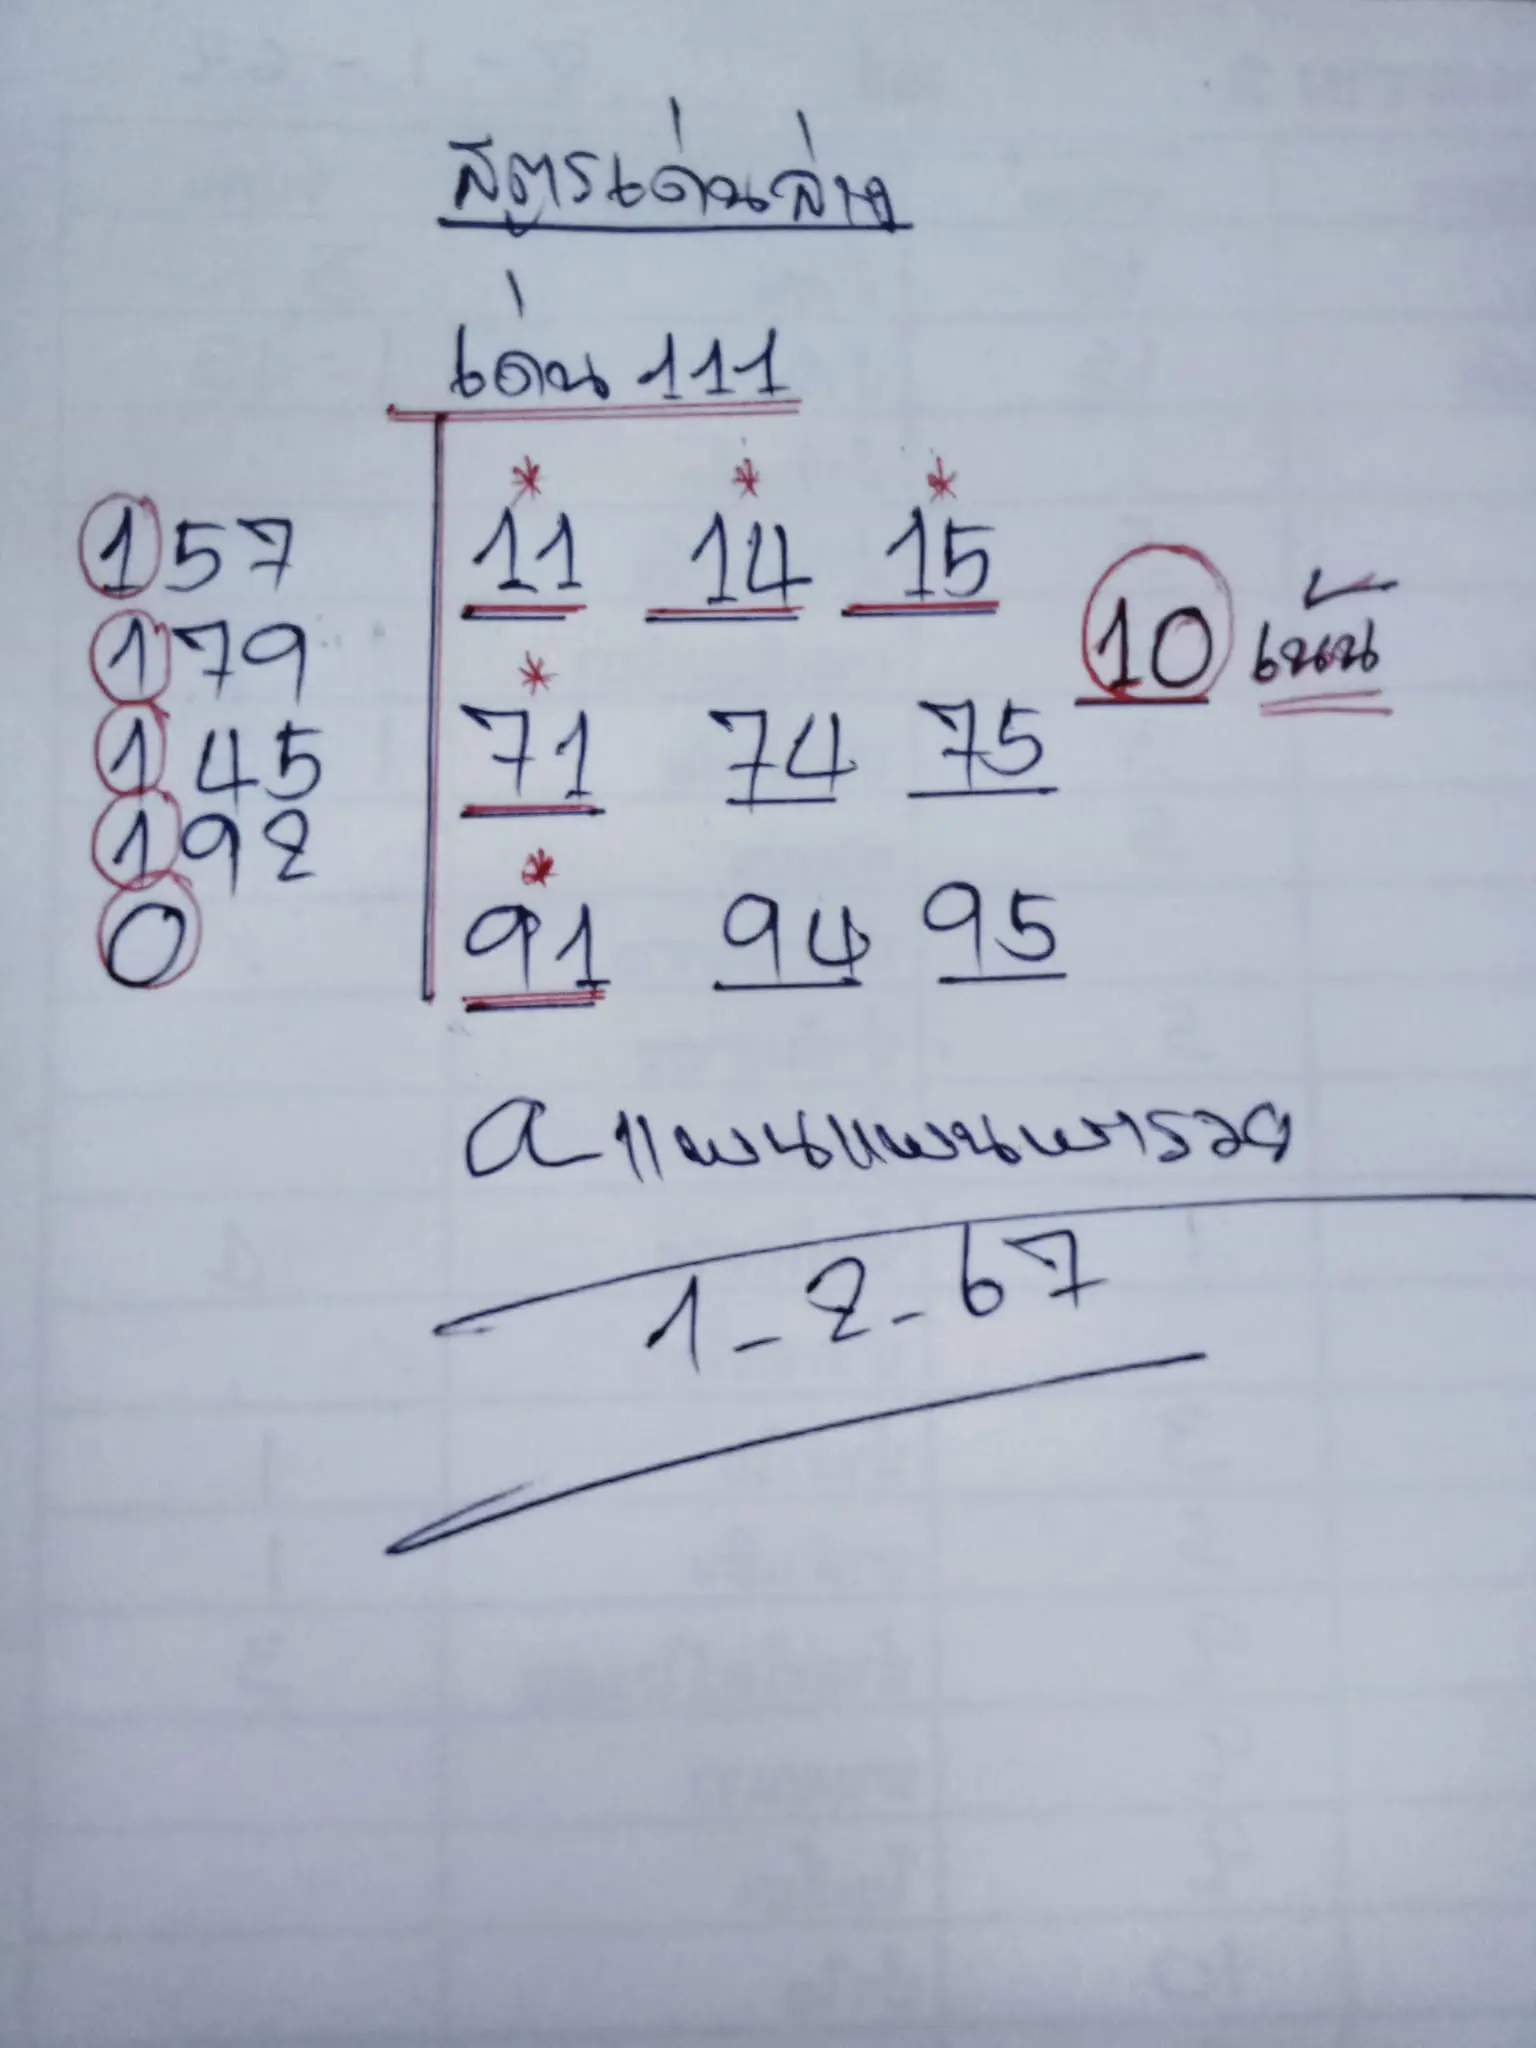 สูตรเด่นล่าง
เด่น 111
157
179
145
192
0
11 14 15
71 74 75
91 94 95
10 เน้น
1-2-67